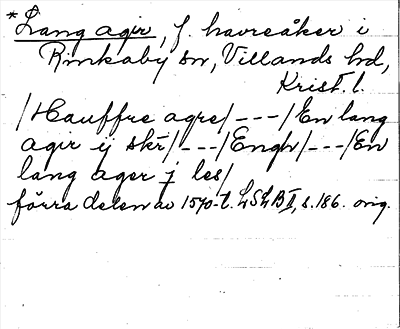 *Lang agir, f. havreåker i
Rinkaby sn, Villands hd,
Krist. l.
/Hauffre agre/---/En lang
agir ij skr/---/Engh/---/En
lang ager j les/
förra delen av 1570-t. LSLB II, s. 186. orig.